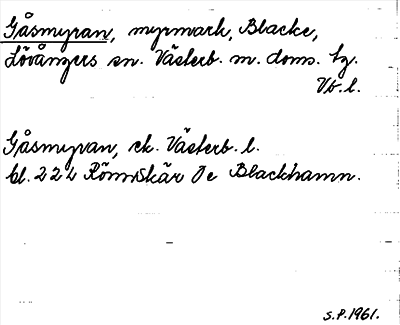 Gåsmyran, myrmark, Blacke,
Lövångers sn. Västerb. m. doms. tg.
Vb. l.
Gåsmyran, ek. Västerb. l.
bl. 222 Rönnskär Öe Blackhamn.
S.P. 1961.